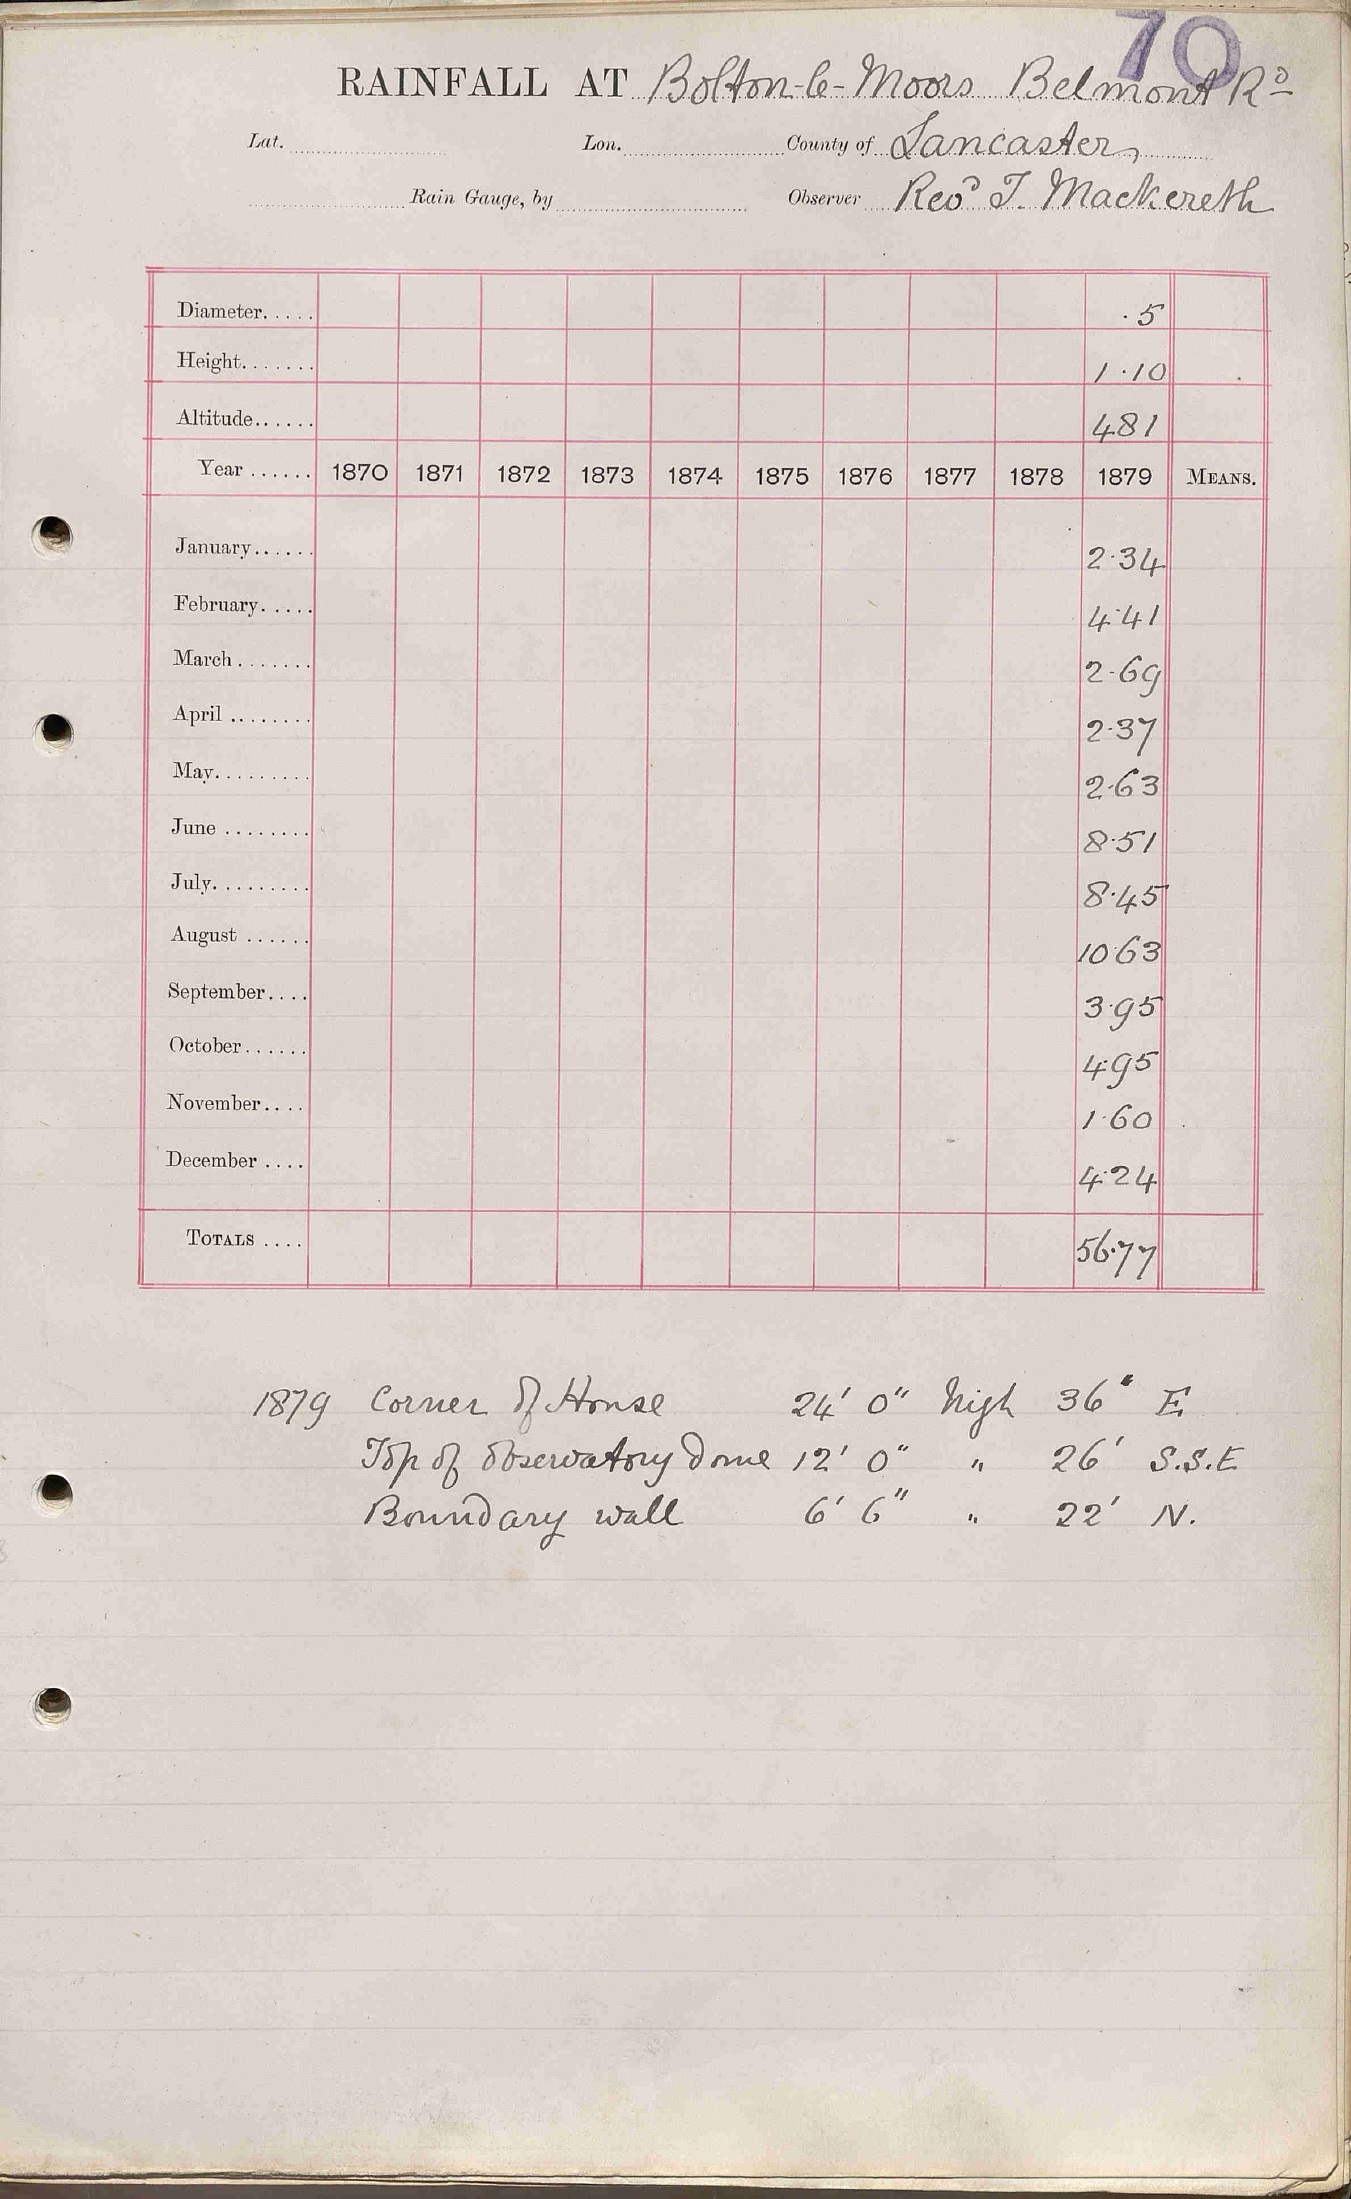 70
RAINFALL AT Bolton-le-Moors Belmont Rd
Lat. Lon. County of Lancaster,
Rain Gauge, by Observer Revd T. Mackereth
Diameter..... .5
Height....... 1.10
Altitude...... 481
Year ...... 1870 1871 1872 1873 1874 1875 1876 1877 1878 1879 MEANS.
January...... 2.34
February..... 4.41
March ....... 2.69
April ........ 2.37
May......... 2.63
June ........ 8.51
July......... 8.45
August ...... 10.63
September.... 3.95
October...... 4.95
November.... 1.60
December .... 4.24
TOTALS .... 56.77
1879 Corner of House 24' 0" high 36" E
Top of Observatory Dome 12' 0" " 26' S.S.E
Boundary wall 6' 6" " 22' N.